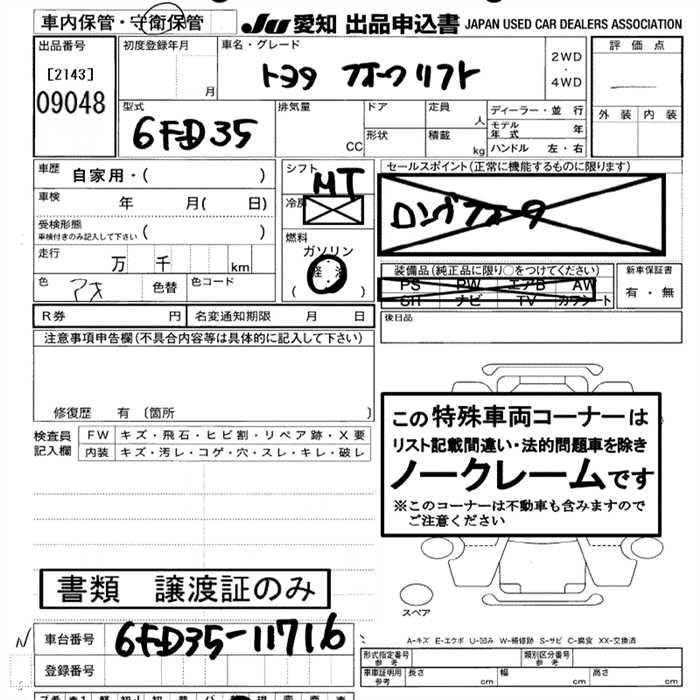 車内保管・守衛保管
JU 愛知 出品申込書 JAPAN USED CAR DEALERS ASSOCIATION
出品番号
[2143]
09048
初度登録年月
月
車名・グレード
トヨタ フォークリフト
2WD
・
4WD
評価点
外装 内装
型式
6FD35
排気量
CC
ドア
形状
定員
人
積載
kg
ディーラー・並行
モデル年式 年
ハンドル 左・右
車歴
自家用・( )
車検 年 月( 日)
受検形態
車検付きのみ記入して下さい ( )
走行 万 千 km
色 アオ 色替 色コード
シフト
MT
冷房
燃料
ガソリン
軽油
( )
セールスポイント(正常に機能するものに限ります)
ロングフォーク
装備品(純正品に限り○をつけてください)
PS PW エアB AW
SR ナビ TV カワシート
新車保証書
有・無
R券 円 名変通知期限 月 日
後日品
注意事項申告欄(不具合内容等は具体的に記入して下さい)
修復歴 有〔箇所 〕
検査員
記入欄
FW キズ・飛石・ヒビ割・リペア跡・X要
内装 キズ・汚レ・コゲ・穴・スレ・キレ・破レ
この特殊車両コーナーは
リスト記載間違い・法的問題車を除き
ノークレームです
※このコーナーは不動車も含みますので
ご注意ください
書類 譲渡証のみ
スペア
車台番号 6FD35-11716
登録番号
A-キズ E-エクボ U-凹み W-補修跡 S-サビ C-腐食 XX-交換済
形式指定番号
参考
類別区分番号
参考
車車証明用
参考
長さ cm 幅 cm 高さ cm